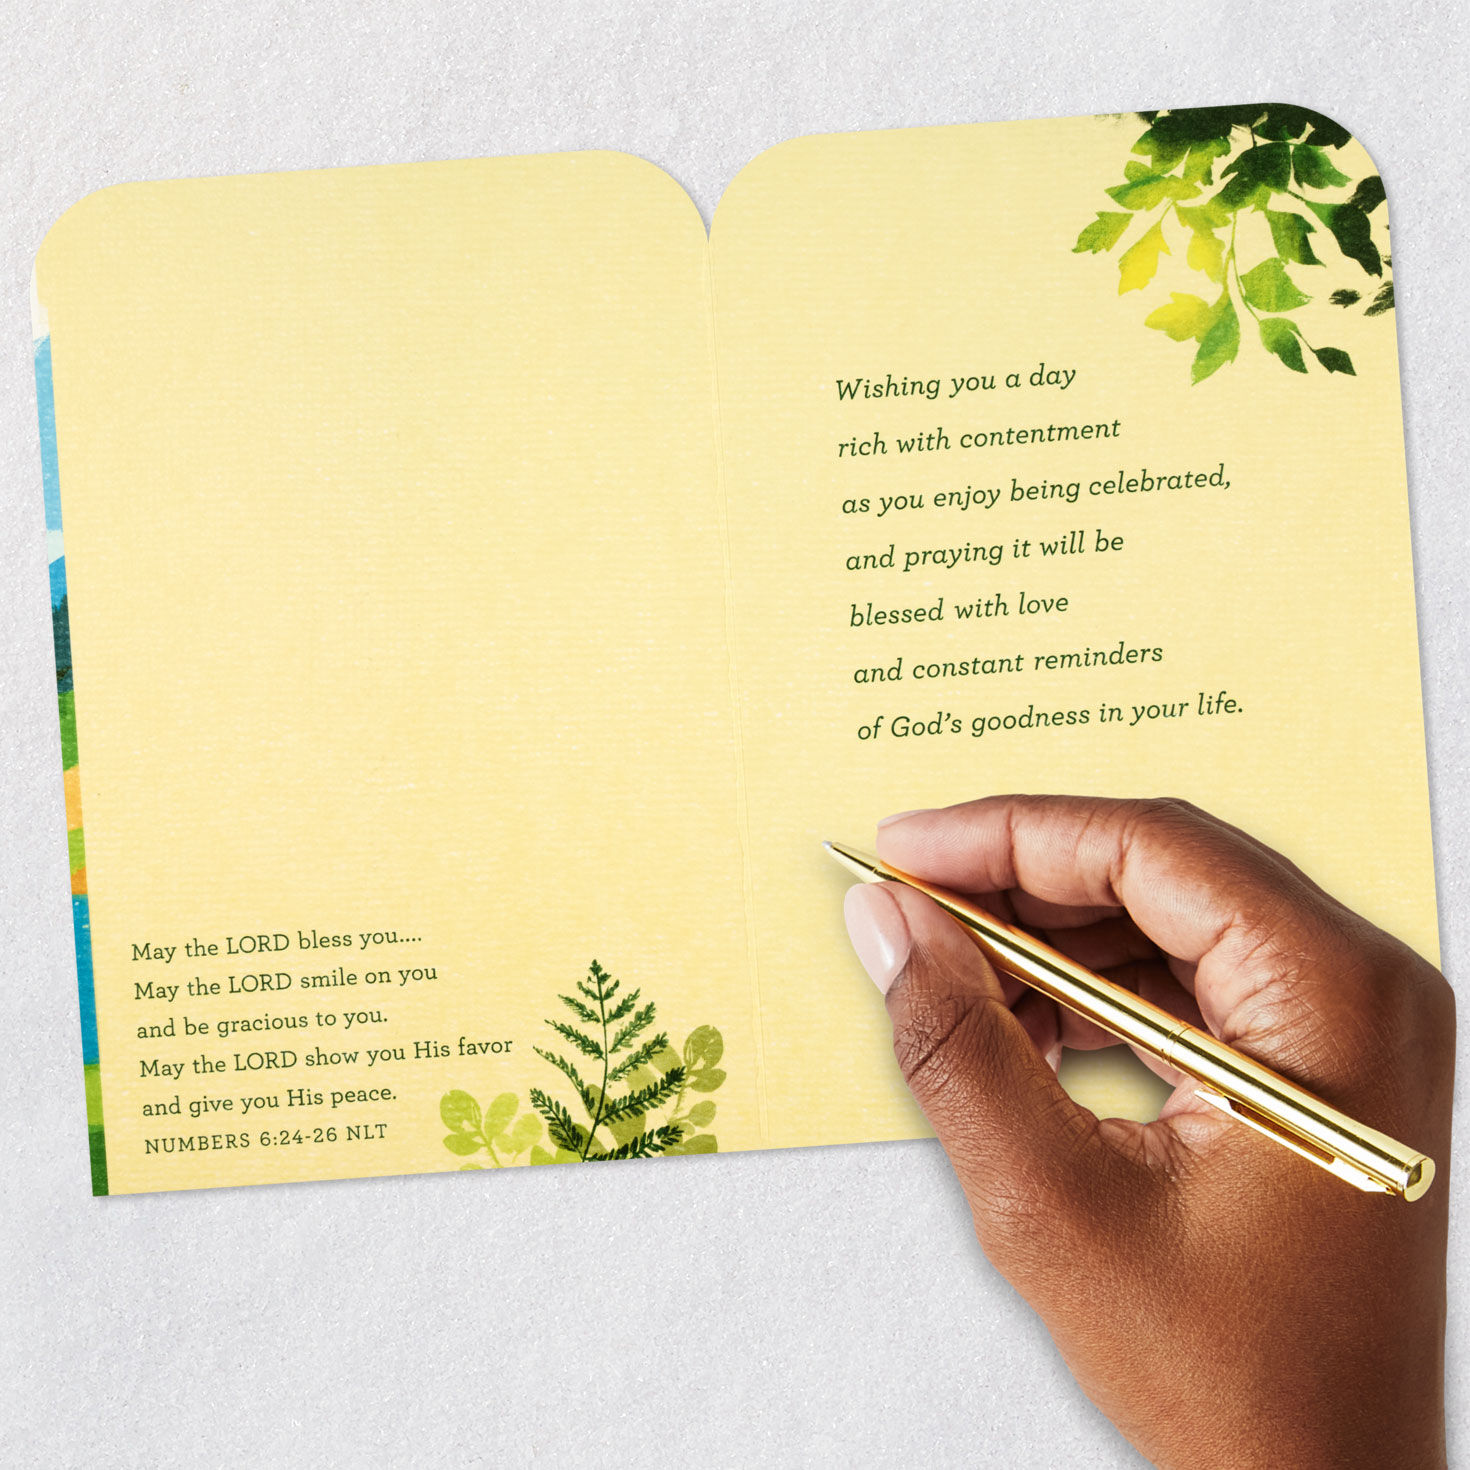 May the LORD bless you....
May the LORD smile on you
and be gracious to you.
May the LORD show you His favor
and give you His peace.
NUMBERS 6:24-26 NLT
Wishing you a day
rich with contentment
as you enjoy being celebrated,
and praying it will be
blessed with love
and constant reminders
of God’s goodness in your life.